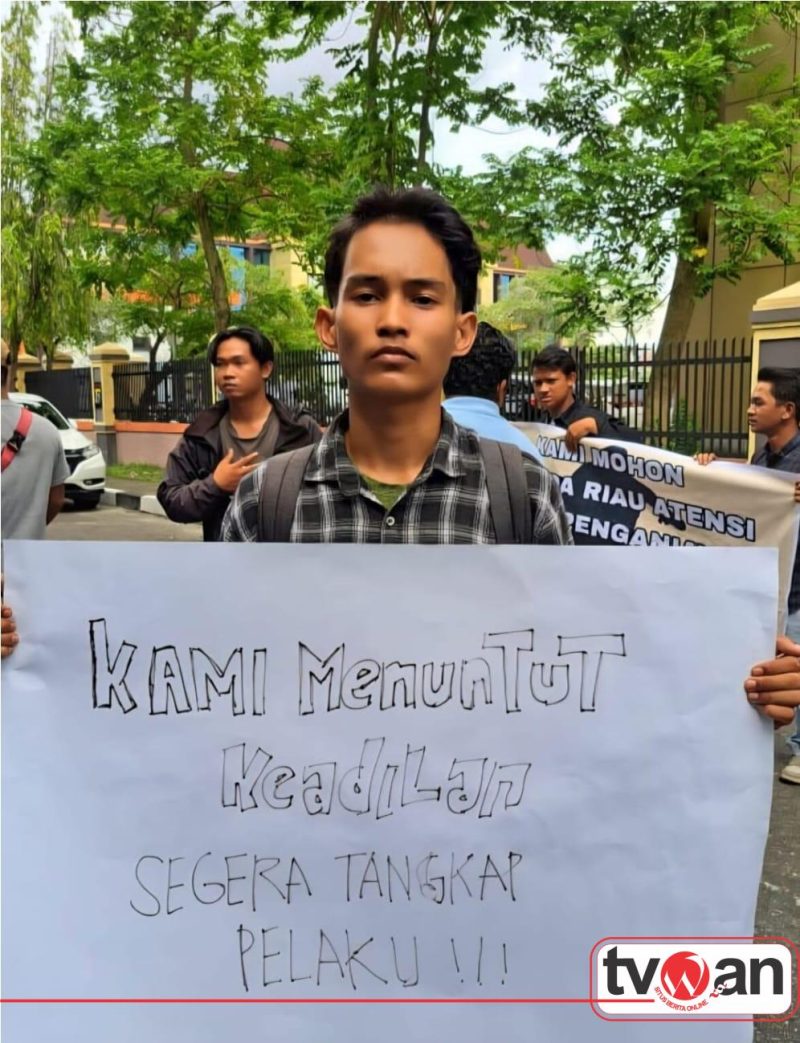 KAMI MOHON
DA RIAU ATENSI
KAMI MenunTuT
KeadiLan
SEGERA TANGKAP
PELAKU !!!
tvwan
SITUS BERITA ONLINE